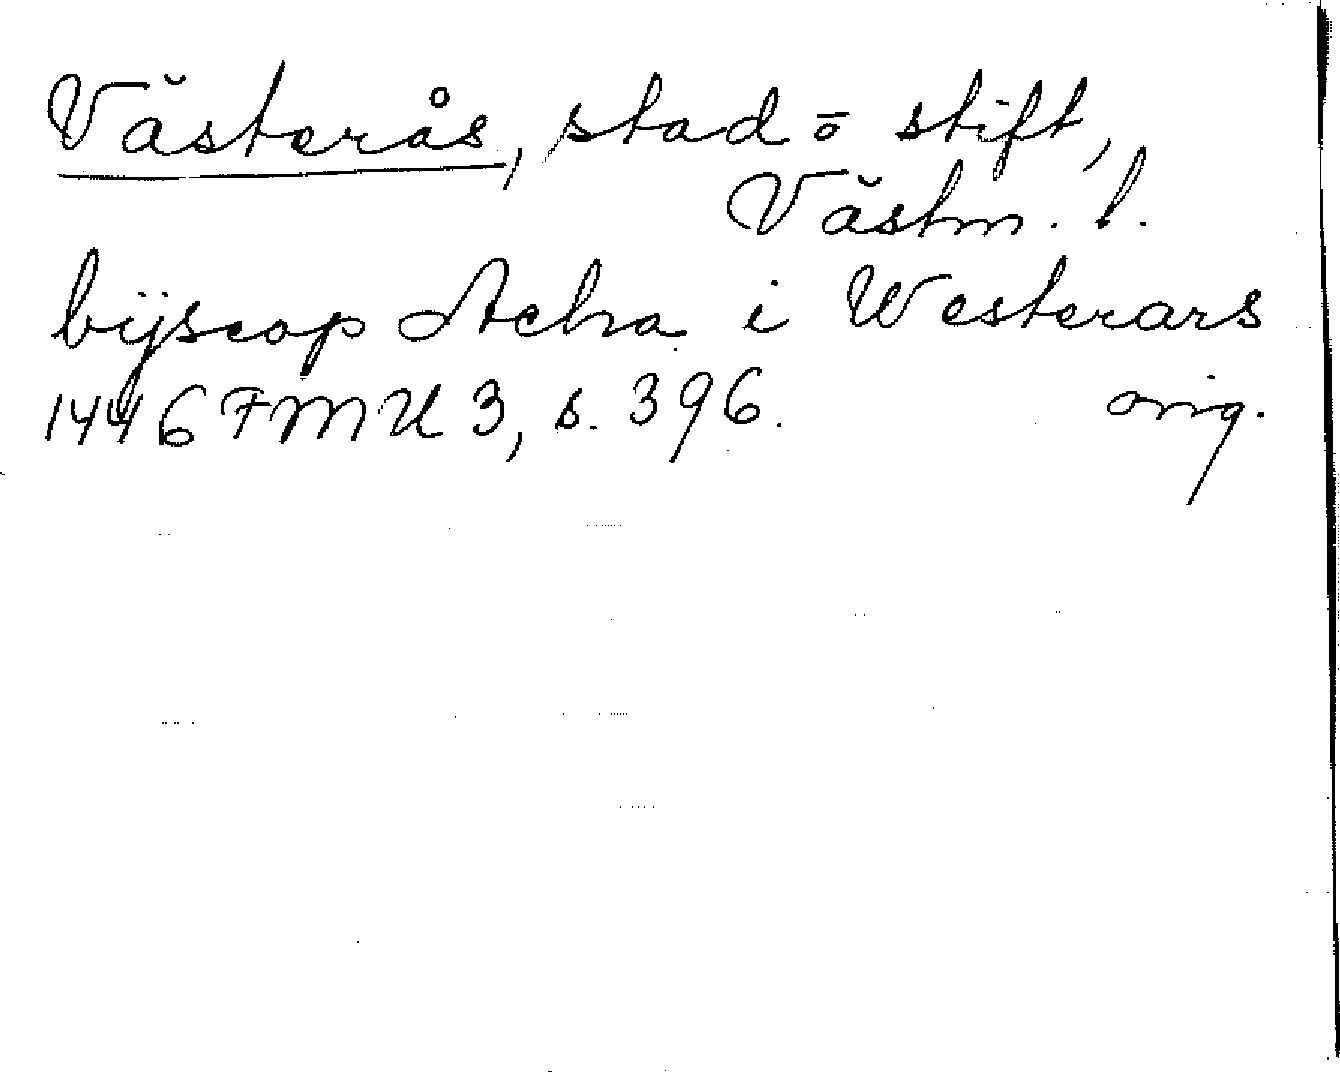 Västerås, stad ō stift,
Västm. l.
bijscop Acha i Westerars
1446 FMU 3, s. 396. orig.